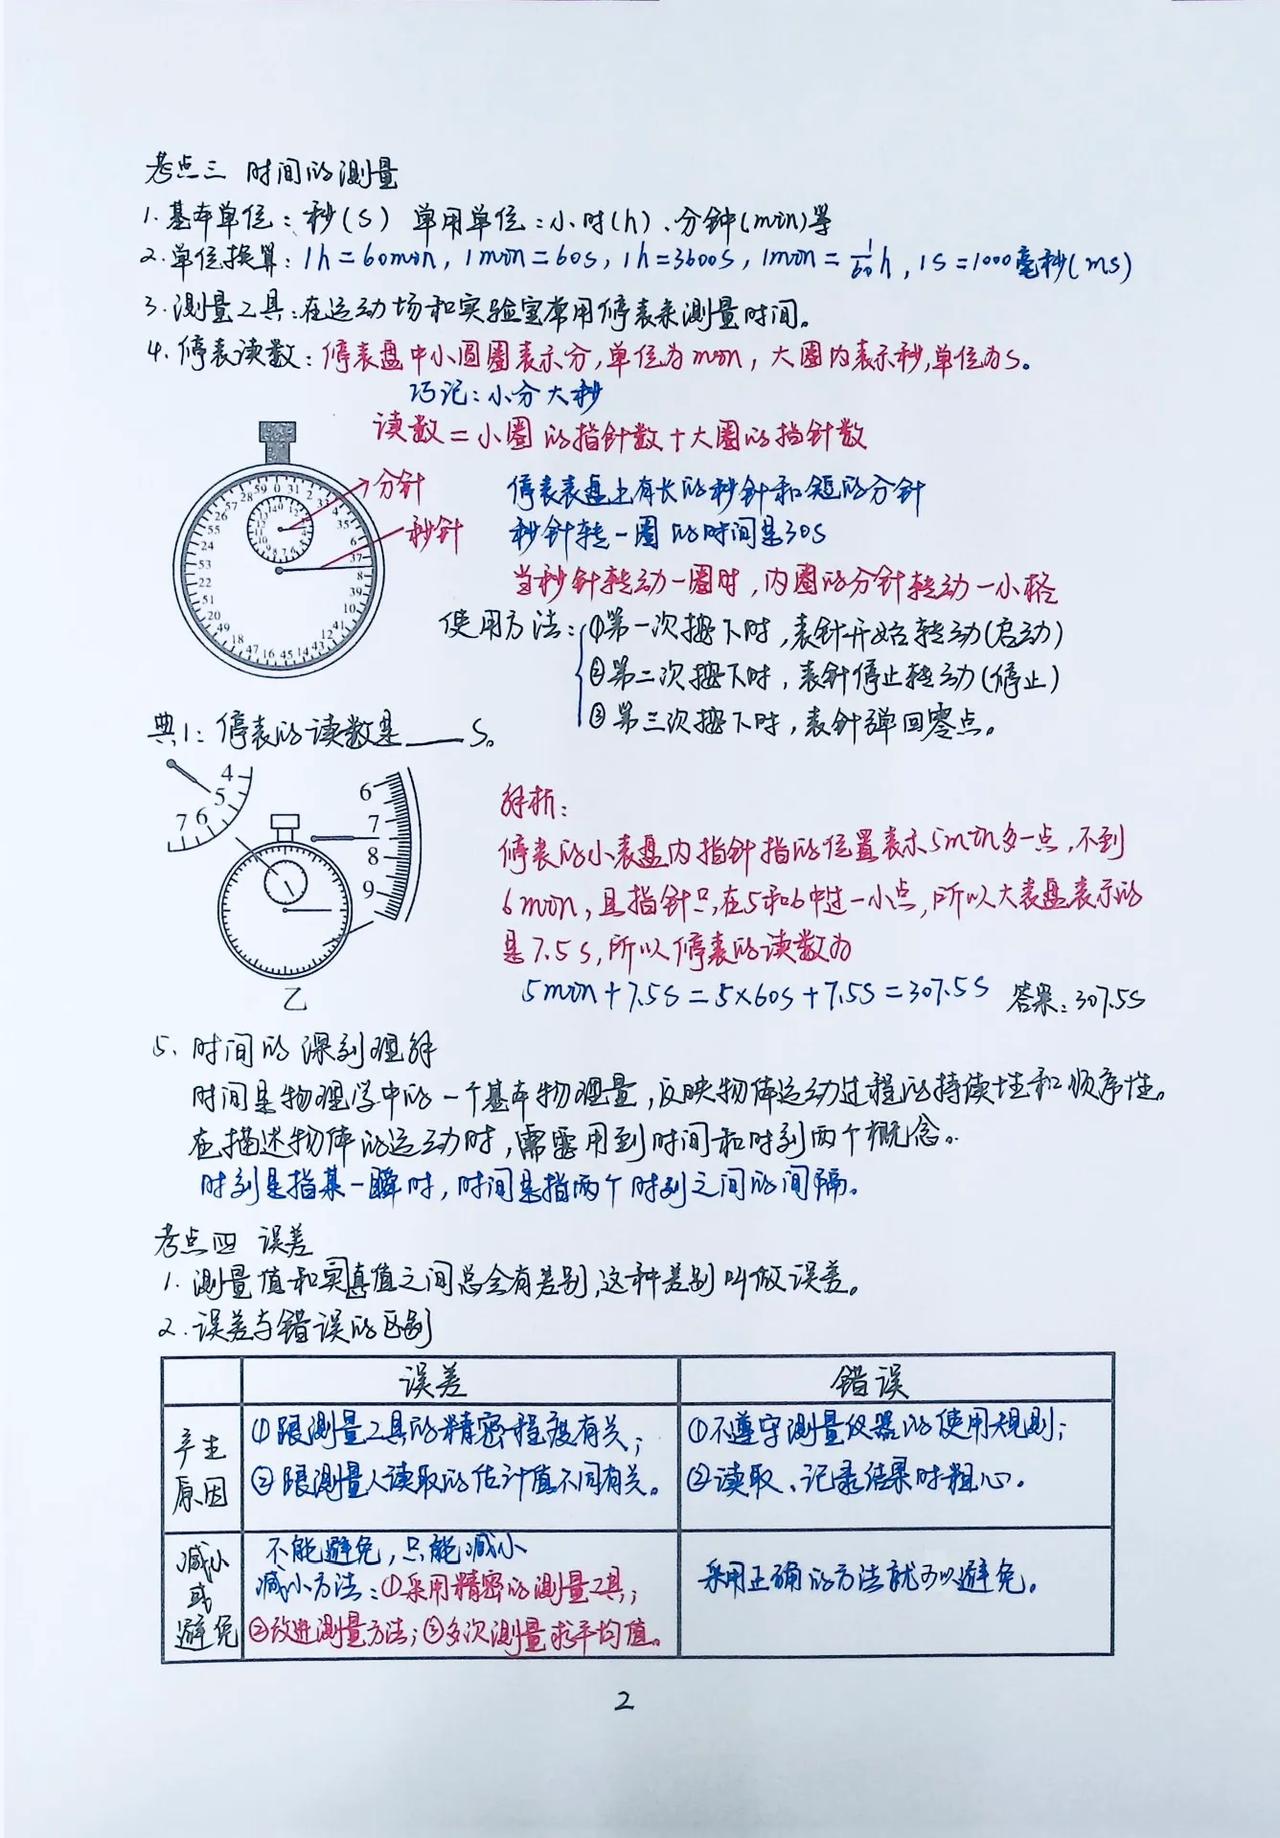 考点三 时间的测量
1.基本单位：秒(s) 单用单位：小时(h)、分钟(min)等
2.单位换算：1h=60min，1min=60s，1h=3600s，1min=1/60h，1s=1000毫秒(ms)
3.测量工具：在运动场和实验室常用停表来测量时间。
4.停表读数：停表盘中小圆圈表示分，单位为min，大圈内表示秒，单位为s。
巧记：小分大秒
读数=小圈的指针数+大圈的指针数
分针
秒针
停表表盘上有长的秒针和短的分针
秒针转一圈的时间是30s
当秒针转动一圈时，内圈的分针转动一小格
使用方法：①第一次按下时，表针开始转动(启动)
②第二次按下时，表针停止转动(停止)
③第三次按下时，表针弹回零点。
59 0 31 2 33 4 35 6 37 8 39 10 41 12 43 14 45 16 47 18 49 20 51 22 53 24 55 26 57 28
典1：停表的读数是____s。
4 5 6 7
6 7 8 9
乙
解析：
停表的小表盘内指针指的位置表示5min多一点，不到
6min，且指针只在5和6中过一小点，所以大表盘表示的
是7.5s，所以停表的读数为
5min+7.5s=5×60s+7.5s=307.5s 答案：307.5s
5、时间的深刻理解
时间是物理学中的一个基本物理量，反映物体运动过程的持续性和顺序性。
在描述物体的运动时，需要用到时间和时刻两个概念。
时刻是指某一瞬时，时间是指两个时刻之间的间隔。
考点四 误差
1.测量值和真值之间总会有差别，这种差别叫做误差。
2.误差与错误的区别
误差 错误
产生原因
①跟测量工具的精密程度有关；
②跟测量人读取的估计值不同有关。
①不遵守测量仪器的使用规则；
②读取、记录结果时粗心。
减小或避免
不能避免，只能减小
减小方法：①采用精密的测量工具；
②改进测量方法；③多次测量求平均值。
采用正确的方法就可以避免。
2